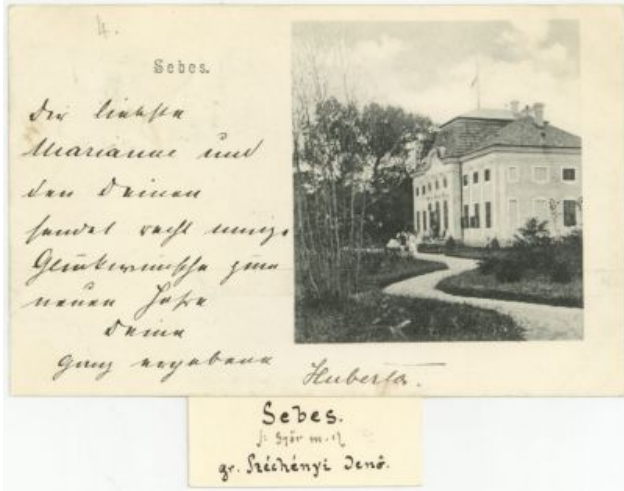 4.
Sebes.
Dir liebste
Marianne und
den Deinen
sendet recht innige
Glückwünsche zum
neuen Jahre
Deine
ganz ergebene
Huberta.
Sebes.
Győr m.
gr. Széchényi Jenő.